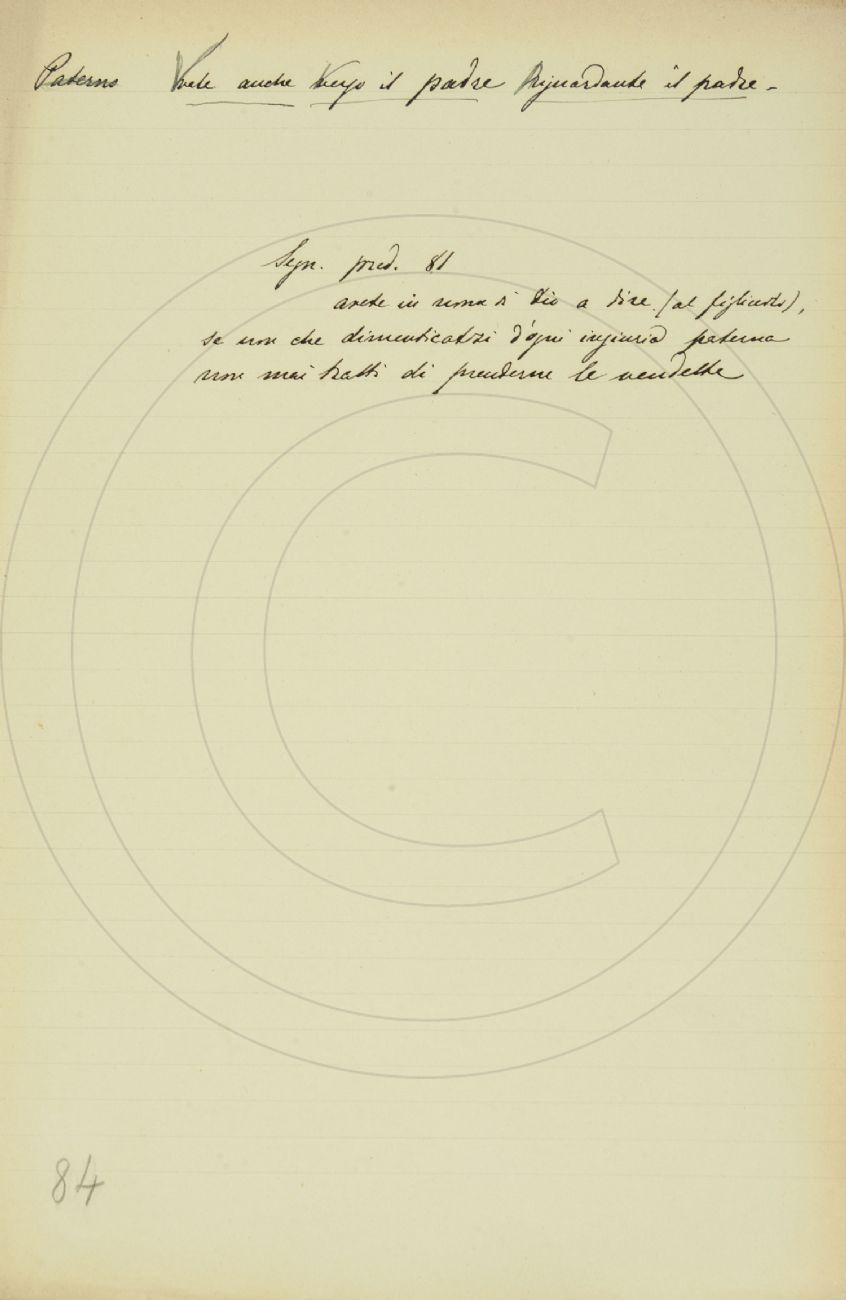 Paterno Vale anche Verso il padre Riguardante il padre -
Segn. pred. 81
avete in nome di Dio a dire (al figliuolo),
se non che dimenticatosi d'ogni ingiuria paterna
non mai tratti di prenderne le vendette
84